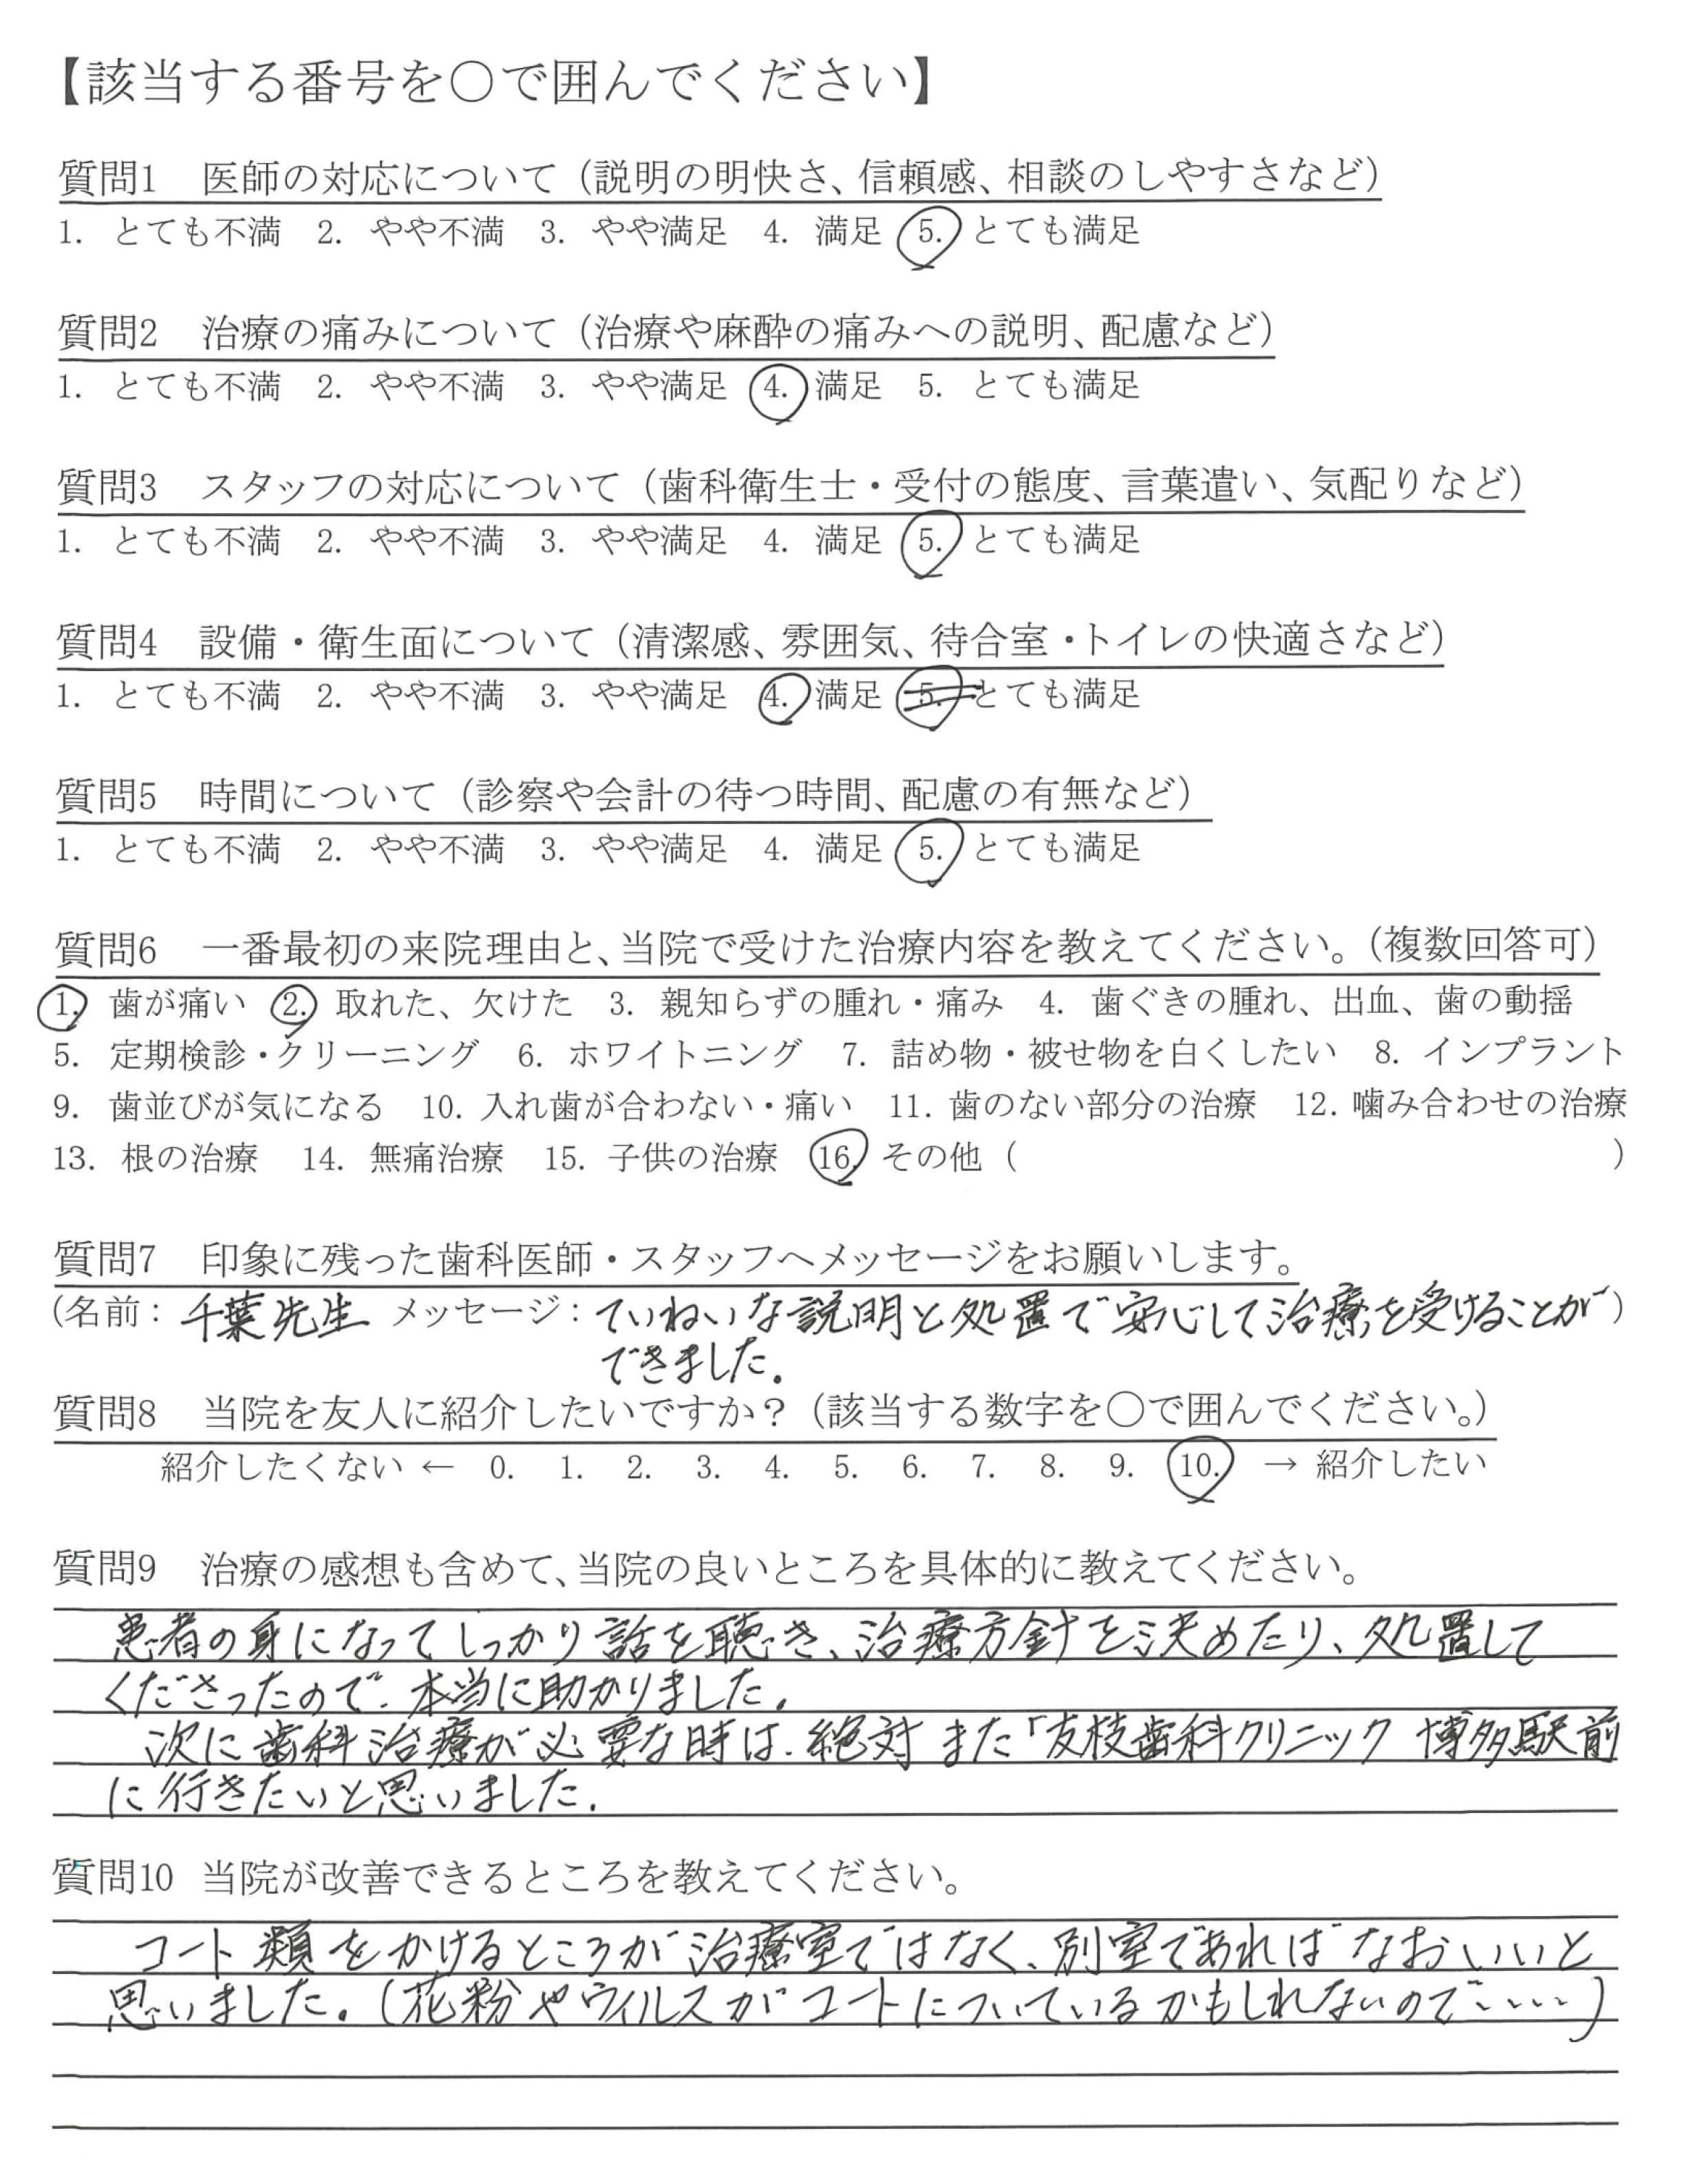 【該当する番号を〇で囲んでください】
質問1　医師の対応について（説明の明快さ、信頼感、相談のしやすさなど）
1. とても不満　2. やや不満　3. やや満足　4. 満足　5. とても満足
質問2　治療の痛みについて（治療や麻酔の痛みへの説明、配慮など）
1. とても不満　2. やや不満　3. やや満足　4. 満足　5. とても満足
質問3　スタッフの対応について（歯科衛生士・受付の態度、言葉遣い、気配りなど）
1. とても不満　2. やや不満　3. やや満足　4. 満足　5. とても満足
質問4　設備・衛生面について（清潔感、雰囲気、待合室・トイレの快適さなど）
1. とても不満　2. やや不満　3. やや満足　4. 満足　5. とても満足
質問5　時間について（診察や会計の待つ時間、配慮の有無など）
1. とても不満　2. やや不満　3. やや満足　4. 満足　5. とても満足
質問6　一番最初の来院理由と、当院で受けた治療内容を教えてください。（複数回答可）
1. 歯が痛い　2. 取れた、欠けた　3. 親知らずの腫れ・痛み　4. 歯ぐきの腫れ、出血、歯の動揺
5. 定期検診・クリーニング　6. ホワイトニング　7. 詰め物・被せ物を白くしたい　8. インプラント
9. 歯並びが気になる　10. 入れ歯が合わない・痛い　11. 歯のない部分の治療　12. 噛み合わせの治療
13. 根の治療　14. 無痛治療　15. 子供の治療　16. その他（　　　）
質問7　印象に残った歯科医師・スタッフへメッセージをお願いします。
（名前：千葉先生 メッセージ：ていねいな説明と処置で安心して治療を受けることが）
できました。
質問8　当院を友人に紹介したいですか？（該当する数字を〇で囲んでください。）
紹介したくない ← 0. 1. 2. 3. 4. 5. 6. 7. 8. 9. 10. → 紹介したい
質問9　治療の感想も含めて、当院の良いところを具体的に教えてください。
患者の身になってしっかり話を聴き、治療方針を決めたり、処置して
くださったので、本当に助かりました。
次に歯科治療が必要な時は、絶対また「友枝歯科クリニック 博多駅前
に行きたいと思いました。
質問10 当院が改善できるところを教えてください。
コート類をかけるところが治療室ではなく、別室であればなおいいと
思いました。（花粉やウィルスがコートについているかもしれないので‥‥）